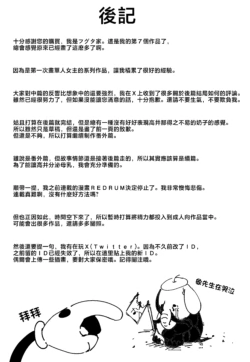 後記
十分感謝您的購買，我是フグタ家。這是我的第7個作品了，
總會感覺原來已經畫了這麼多了啊。
因為是第一次畫單人女主的系列作品，讓我積累了很好的經驗。
大家對中篇的反響比想象中的還要強烈，我在X上收到了很多關於後篇結局如何的評論。
雖然已經很努力了，但如果沒能讓您滿意的話，十分抱歉。還請不要生氣，不要欺負我。
姑且打算在後篇就完結，但是總有一種沒有好好表現高井那得之不易的奶子的感覺，
所以雖然只是草稿，但還是畫了前一頁的致歉。
但還是不夠，所以打算繼續制作番外篇。
雖說是番外篇，但故事情節還是接著後篇走的，所以其實應該算是續篇。
為了能讓高井分泌母乳，我會充分準備的。
順帶一提，我之前連載的漫畫REDRUM決定停止了。我非常懊悔悲傷。
連載真艱啊，沒有什麼好方法嗎？
但也正因如此，時間空下來了，所以暫時打算將精力都投入到成人向作品當中。
可能會出很多作品，還請多多關照。
然後還要提一句，我有在玩X（Twitter）。因為不久前改了ID，
之前舊的ID已經失效了，所以在這里貼上我的新ID。
偶爾會上傳一些插畫，要對大家保密哦，記得關注哦。
拜拜
先生在哭泣